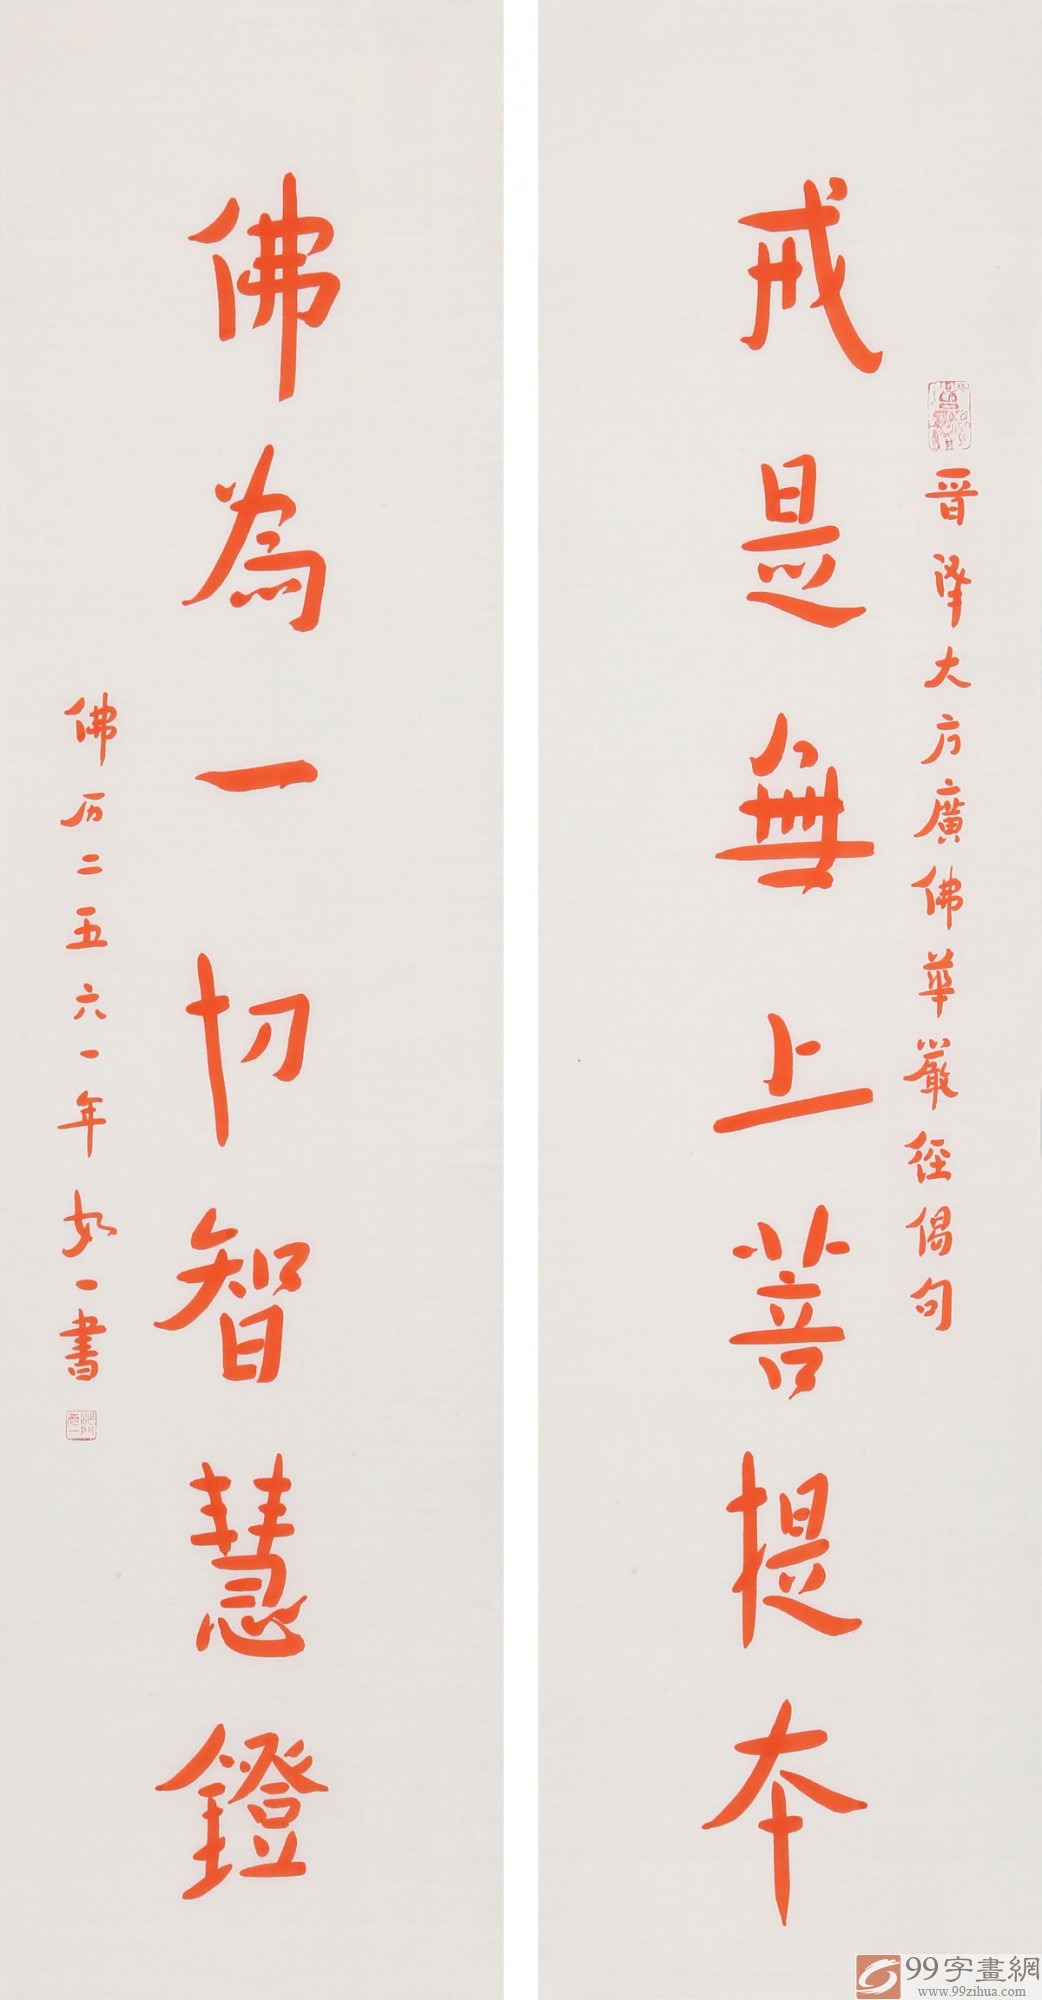 晋译大方廣佛華嚴經偈句
戒是無上菩提本
佛為一切智慧鐙
佛历二五六一年如一書
99字畫網
www.99zihua.com